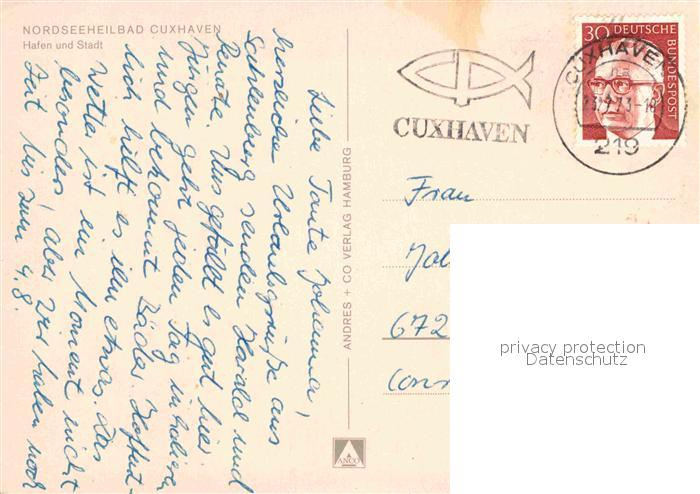 NORDSEEHEILBAD CUXHAVEN
Hafen und Stadt
Liebe Tante Johanna,
herzliche Urlaubsgrüße aus
Sahlenburg senden Harald und
Renate. Uns gefällt es gut hier.
Jürgen geht jeden Tag inhalieren
und bekommt Bäder. Hoffent-
lich hilft es ihm etwas. Das
Wetter ist im Moment nicht
besonders! Aber wir haben noch
Zeit bis zum 4.8.
ANDRES + CO VERLAG HAMBURG
ANCO
CUXHAVEN
30 DEUTSCHE BUNDESPOST
CUXHAVEN
219
Frau
Joh
672
privacy protection
Datenschutz